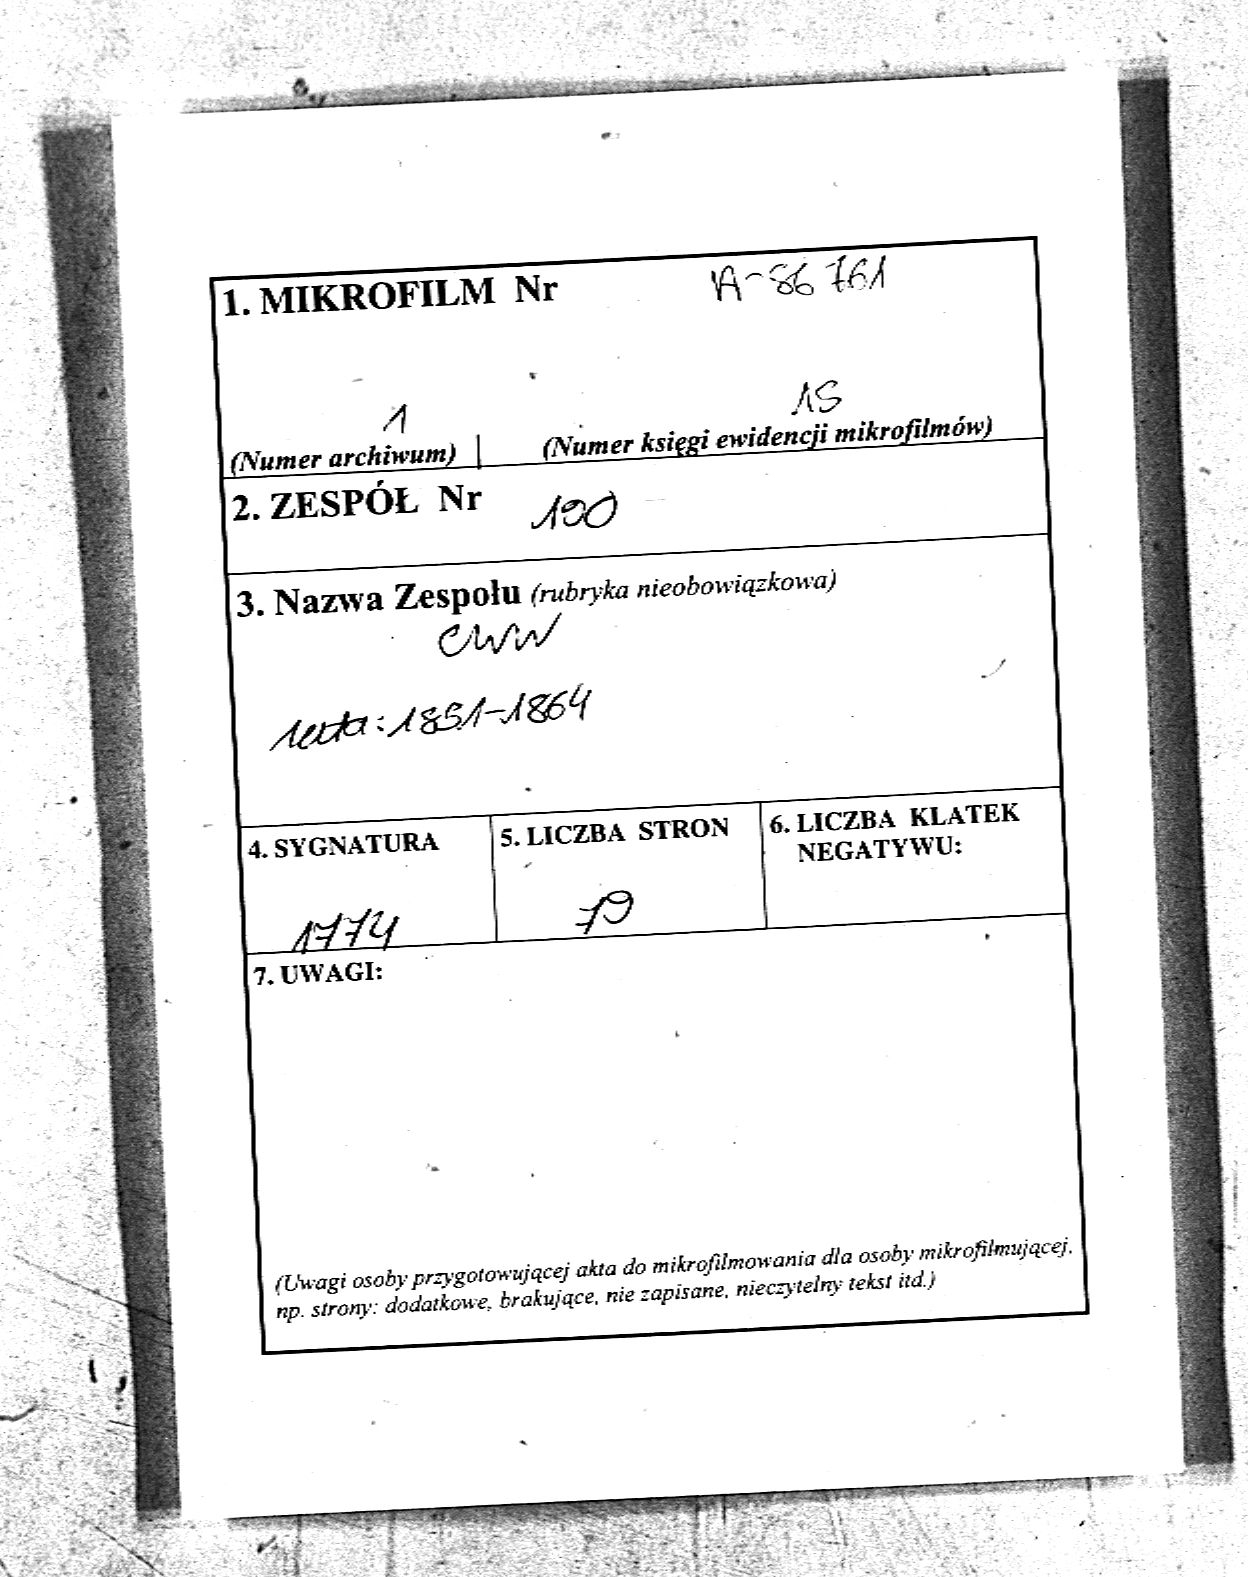 1. MIKROFILM Nr A-86 761
1 15
(Numer archiwum) (Numer księgi ewidencji mikrofilmów)
2. ZESPÓŁ Nr 190
3. Nazwa Zespołu (rubryka nieobowiązkowa)
CWW
1851-1864
4. SYGNATURA 5. LICZBA STRON 6. LICZBA KLATEK
NEGATYWU:
1774 79
7. UWAGI:
(Uwagi osoby przygotowującej akta do mikrofilmowania dla osoby mikrofilmującej.
np. strony: dodatkowe, brakujące, nie zapisane, nieczytelny tekst itd.)